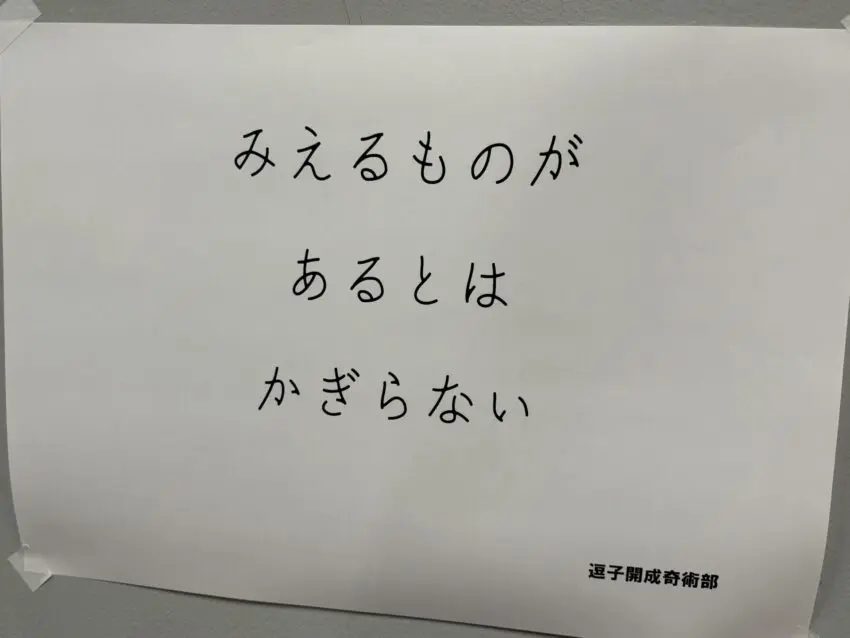 みえるものが
あるとは
かぎらない
逗子開成奇術部